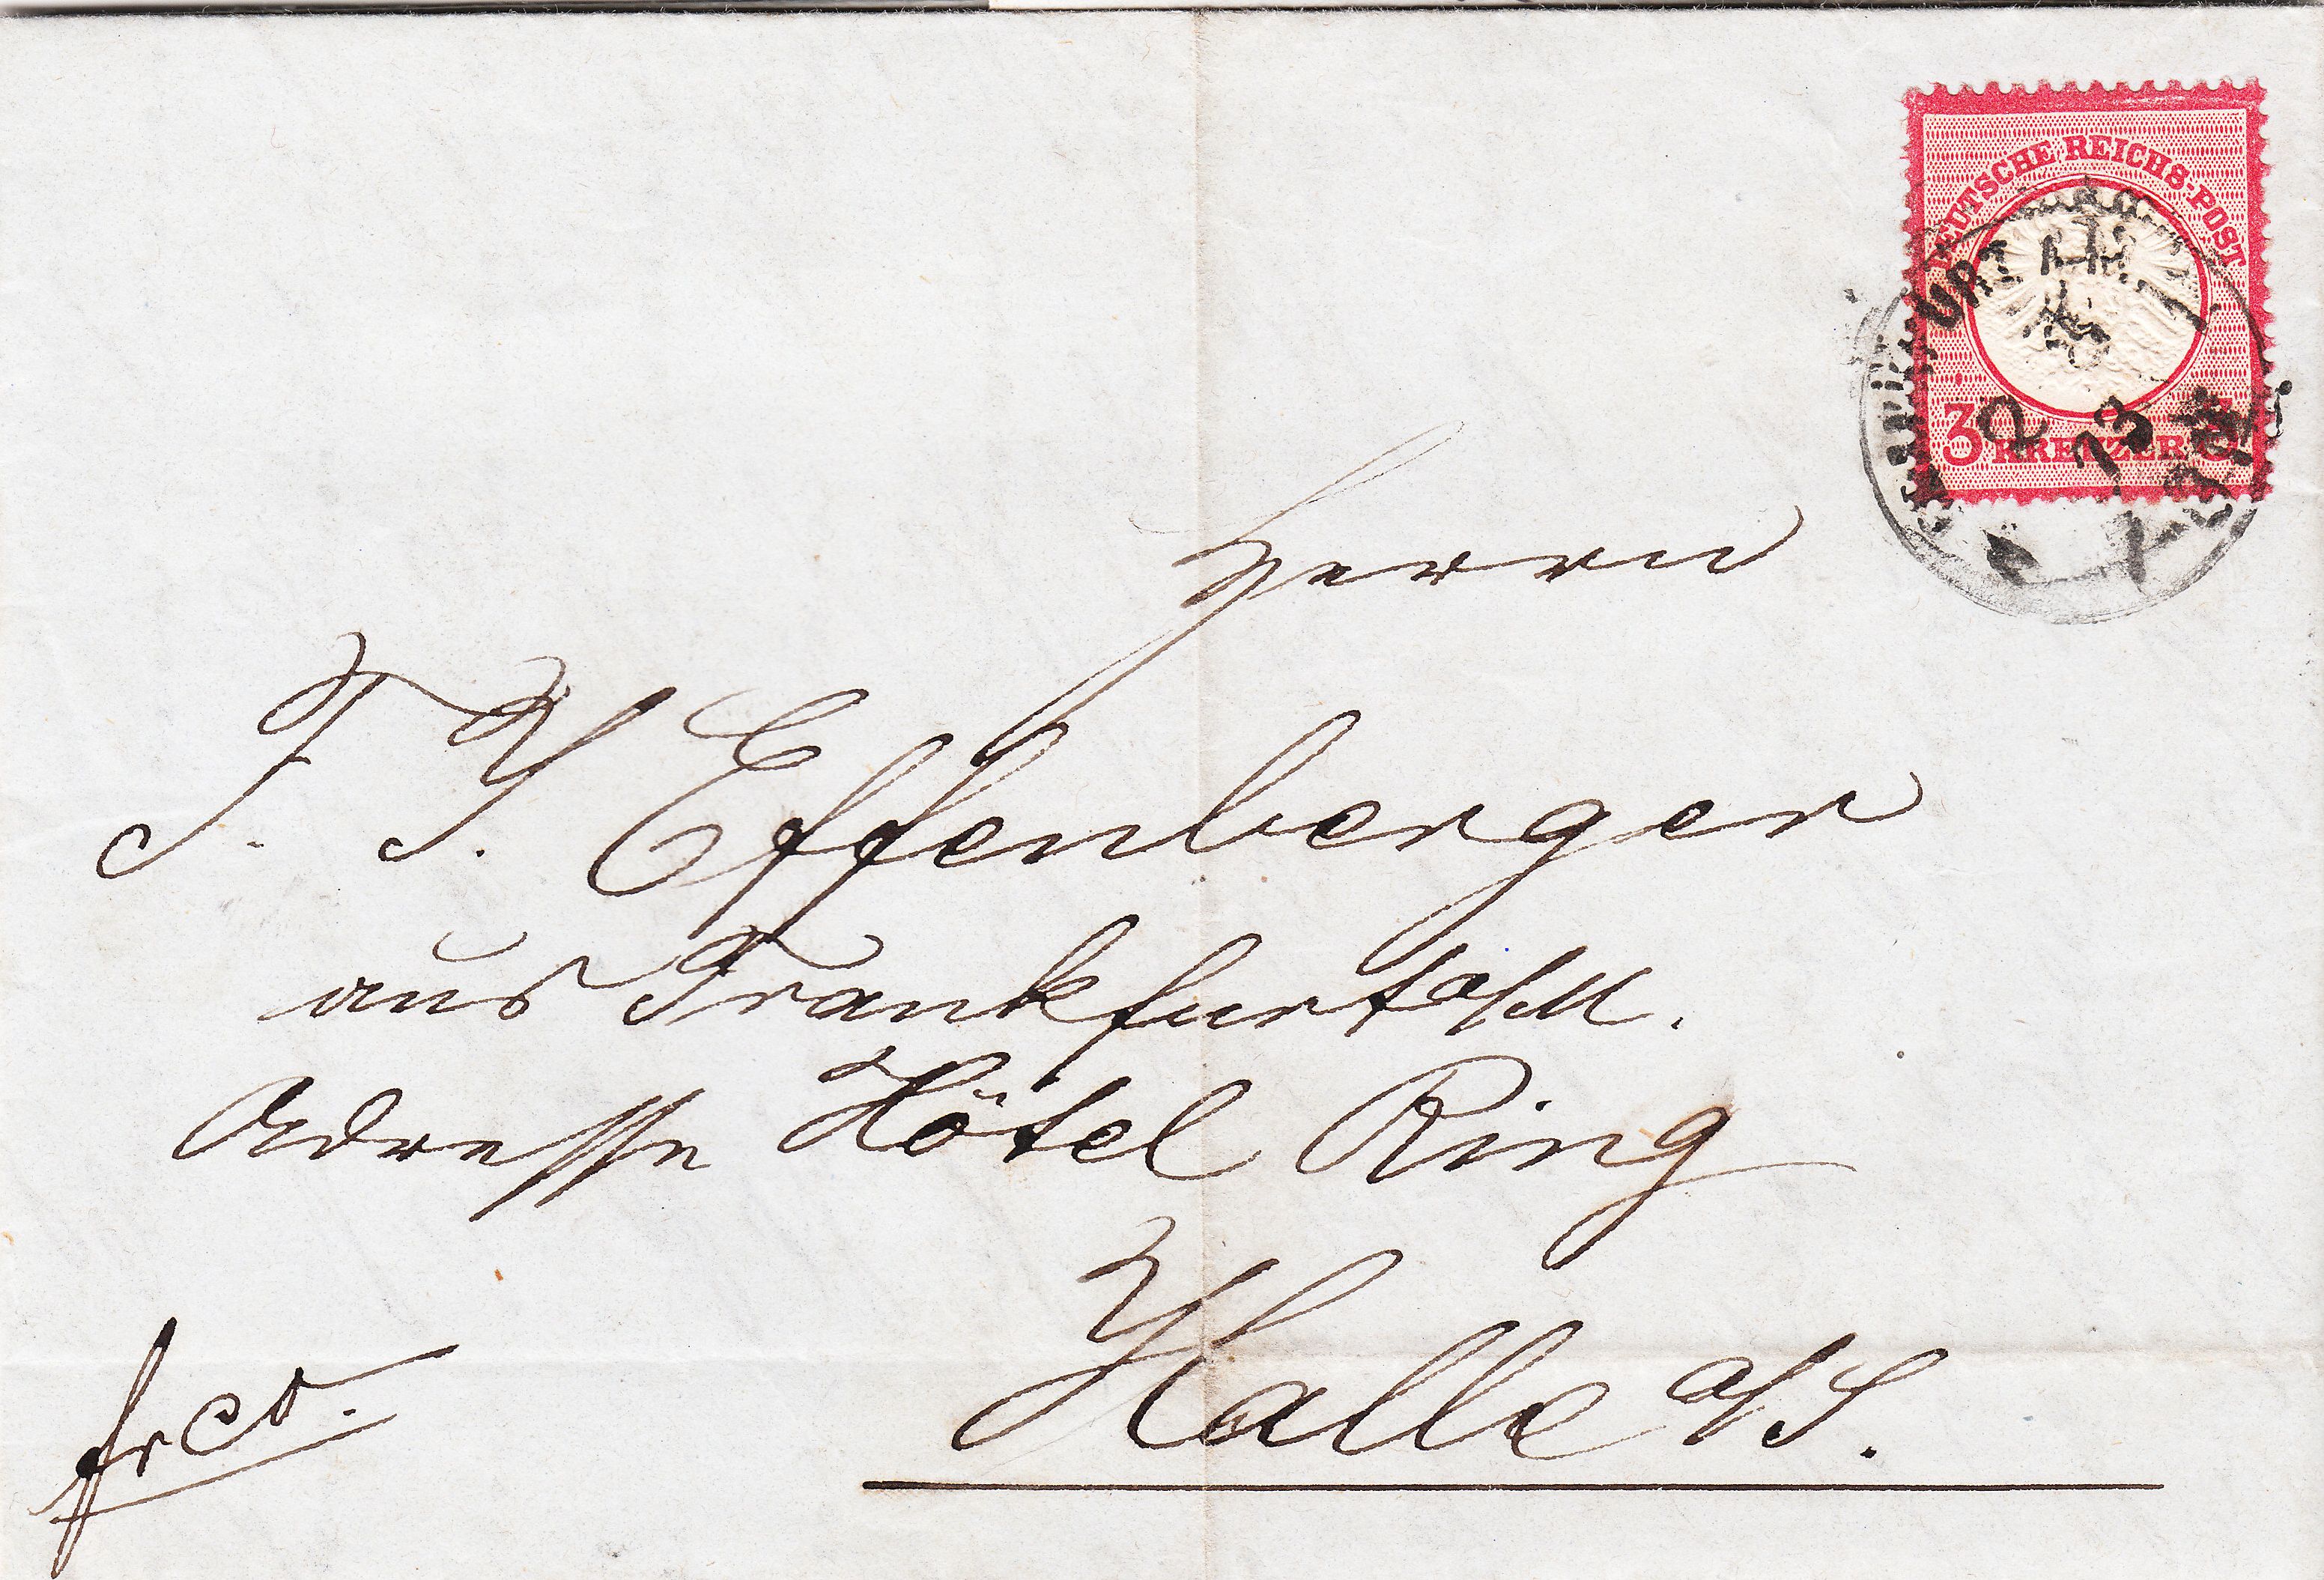 DEUTSCHE REICHS-POST
3 KREUZER 3
Herrn
J. J. Effenberger
aus Frankfurt a/M.
Adresse Hôtel Ring
Halle a/S.
frco.